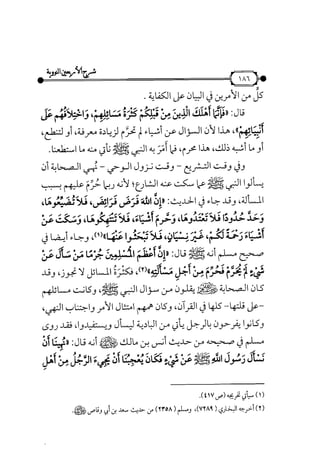 شرح الأربعين النووية
١٨٦
كلٌّ من الأمرين في البيان على الكفاية .
قال: «فَإِنَّمَا أَهْلَكَ الَّذِينَ مِنْ قَبْلِكُمْ كَثْرَةُ مَسَائِلِهِمْ، وَاخْتِلَافُهُمْ عَلَى
أَنْبِيَائِهِمْ»، هذا لأن السؤال عن أشياء لم تحرَّم لزيادة معرفة، أو لتنطع،
أو ما أشبه ذلك، هذا محرم، فما أَمَرَ به النبي ﷺ نأتي منه ما استطعنا.
وفي وقت التشريع - وقت نزول الوحي - نُهي الصحابة أن
يسألوا النبي ﷺ عما سكت عنه الشارع؛ لأنه ربما حُرِّمَ عليهم بسبب
المسألة، وقد جاء في الحديث: «إِنَّ اللهَ فَرَضَ فَرَائِضَ، فَلَا تُضَيِّعُوهَا،
وَحَدَّ حُدُودًا فَلَا تَعْتَدُوهَا، وَحَرَمَ أَشْيَاءَ، فَلَا تَنْتَهِكُوهَا، وَسَكَتَ عَنْ
أَشْيَاءَ رَحْمَةً لَكُمْ، غَيْرَ نِسْيَانٍ، فَلَا تَبْحَثُوا عَنْهَا»(١)، وجاء أيضا في
صحيح مسلم أنه ﷺ قال: «إِنَّ أَعْظَمَ الْمُسْلِمِينَ جُرْمًا مَنْ سَأَلَ عَنْ
شَيْءٍ لَمْ يُحَرَّمْ فَحُرِّمَ مِنْ أَجْلِ مَسْأَلَتِهِ»(٢)، فكثرَةُ المسائل لا تجوز، وقد
كان الصحابة ﷺ يقلون من سؤال النبي ﷺ، وكانت مسائلهم
-على قلتها- كلها في القرآن، وكان همهم امتثال الأمر واجتناب النهي،
وكانوا يفرحون بالرجل يأتي من البادية ليسأل ويستفيدوا، فقد روى
مسلم في صحيحه من حديث أنس بن مالك أنه قال: «نُهِينَا أَنْ
نَسْأَلَ رَسُولَ اللهِ ﷺ عَنْ شَيْءٍ فَكَانَ يُعْجِبُنَا أَنْ يَجِيءَ الرَّجُلُ مِنْ أَهْلِ
(١) سيأتي تخريجه (ص٤١٧).
(٢) أخرجه البخاري (٧٢٨٩)، ومسلم (٢٣٥٨) من حديث سعد بن أبي وقاص .